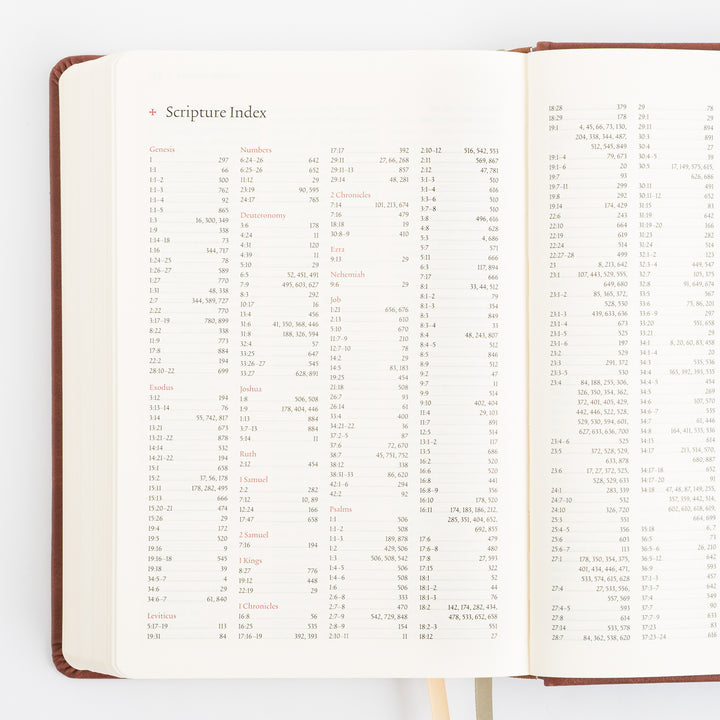 Scripture Index
Genesis
1 297
1:1 66
1:1–2 300
1:1–3 762
1:1–4 92
1:1–5 865
1:3 16, 300, 349
1:9 338
1:14–18 73
1:16 344, 717
1:24–25 78
1:26–27 589
1:27 170
1:31 48, 338
2:7 344, 589, 727
2:22 770
3:17–19 780, 899
8:22 338
11:9 773
17:8 884
22:2 194
28:10–22 699
Exodus
3:12 194
3:13–14 76
3:14 55, 742, 817
13:21 673
13:21–22 878
14:14 532
14:21–22 194
15:1 658
15:2 37, 56, 178
15:11 178, 282, 495
15:13 666
15:20–21 474
15:26 29
19:4 172
19:5 520
19:16 9
19:16–18 545
19:18 39
34:5–7 4
34:6 29
34:6–7 61, 840
Leviticus
5:17–19 113
19:31 84
Numbers
6:24–26 642
6:25–26 652
11:12 29
23:19 90, 595
24:17 765
Deuteronomy
3:6 178
4:24 11
4:31 120
4:39 11
5:10 29
6:5 52, 451, 491
7:9 495, 603, 627
8:3 292
10:17 16
13:4 456
31:6 41, 350, 368, 446
31:8 188, 326, 594
32:4 57
33:25 647
33:26–27 545
33:27 628, 891
Joshua
1:8 506, 508
1:9 178, 404, 446
1:13 884
3:7–13 884
5:14 11
Ruth
2:12 454
1 Samuel
2:2 282
7:12 10, 89
12:24 166
17:47 658
2 Samuel
7:16 194
1 Kings
8:27 776
19:12 448
22:19 29
1 Chronicles
16:8 56
16:25 535
17:16–19 392, 393
17:17 392
29:11 27, 66, 268
29:11–13 857
29:14 48, 281
2 Chronicles
7:14 101, 213, 674
7:16 479
18:18 19
30:8–9 410
Ezra
9:13 29
Nehemiah
9:6 29
Job
1:21 656, 676
2:13 610
5:10 670
11:7–9 210
12:7–10 78
14:2 29
14:5 83, 183
19:25 454
21:18 508
26:7 93
26:14 61
33:4 400
34:21–22 36
37:2–5 87
37:6 72, 670
38:7 45, 751, 752
38:12 338
38:31–33 86, 620
42:1–6 294
42:2 92
Psalms
1:1 506
1:1–2 508
1:1–3 189, 878
1:2 429, 506
1:3 506, 508, 542
1:4–5 506
1:4–6 508
1:6 506
2:6–8 333
2:7–8 470
2:7–9 542, 729, 848
2:8–9 154
2:10–11 11
2:10–12 516, 542, 553
2:11 569, 867
2:12 47, 781
3:1–3 510
3:1–4 616
3:3–6 510
3:7–8 510
3:8 496, 616
4:8 628
5:3 4, 686
5:7 571
5:11 666
6:3 117, 894
7:17 666
8:1 33, 44, 512
8:1–2 79
8:1–3 354
8:3 849
8:3–4 33
8:4 48, 243, 807
8:4–5 512
8:5 846
8:9 512
9:2 47
9:7 11
9:9 514
9:10 402, 404
11:4 29, 103
11:7 891
12:5 514
13:1–2 117
13:5 686
16:2 520
16:6 520
16:8 441
16:8–9 356
16:10 178, 520
16:11 174, 183, 186, 212,
285, 351, 404, 652,
692, 855
17:6 479
17:6–8 480
17:8 27, 593
17:15 322
18:1 52
18:1–2 44
18:1–3 76
18:2 142, 174, 282, 434,
478, 533, 652, 658
18:2–3 551
18:12 27
18:28 379
18:29 178
19:1 4, 45, 66, 73, 130,
204, 338, 344, 487,
512, 545, 849
19:1–4 79, 673
19:1–6 20
19:7 93
19:7–11 299
19:8 292
19:14 174, 429
22:6 243
22:10 664
22:19 619
22:24 514
22:27–28 493
23 8, 213, 642
23:1 107, 443, 529, 555,
649, 680
23:1–2 85, 365, 372,
528, 530
23:1–3 439, 633, 636
23:1–4 673
23:1–5 525
23:1–6 197
23:2 529
23:3 291, 372
23:3–5 530
23:4 84, 188, 255, 306,
326, 350, 354, 362,
372, 401, 405, 429,
442, 446, 522, 528,
529, 530, 594, 601,
627, 633, 636, 700
23:4–6 525
23:5 372, 528, 529,
633, 878
23:6 17, 27, 372, 525,
528, 529, 633
24:1 283, 339
24:7–10 532
24:10 326, 720
25:3 551
25:4–5 356
25:6 603
25:6–7 113
27:1 178, 350, 354, 375,
401, 434, 446, 471,
533, 574, 615, 628
27:4 27, 533, 556,
557, 569
27:4–5 593
27:8 614
27:14 533, 578
28:7 84, 362, 538, 620
29 78
29:1 29
29:11 894
30:3 891
30:4 27
30:4–5 39
30:5 17, 149, 575, 615,
626, 686
30:11 491
30:11–12 652
31:15 83
31:19 642
31:19–20 166
31:23 282
31:24 514
32:1–2 123
32:3–4 449, 547
32:7 105, 175
32:8 91, 649, 674
33:5 567
33:6 75, 86, 201
33:6–9 297
33:20 551, 658
33:21 29
34:1 8, 20, 60, 83, 458
34:1–4 20
34:3 535, 536
34:4 365, 392, 393, 535
34:4–5 454
34:5 269
34:6 107, 570
34:6–7 535
34:7 61, 446
34:8 164, 411, 535, 536
34:13 614
34:17 213, 514, 570,
680, 887
34:17–18 652
34:17–20 91
34:18 47, 48, 87, 149, 255,
357, 359, 442, 514,
602, 610, 618, 619,
664, 699
35:18 6, 7
36:5 73
36:5–6 26, 210
36:5–12 642
36:9 593
37:1–3 457
37:3–7 642
37:4 349
37:7 90
37:7–9 633
37:23 83
37:23–24 616